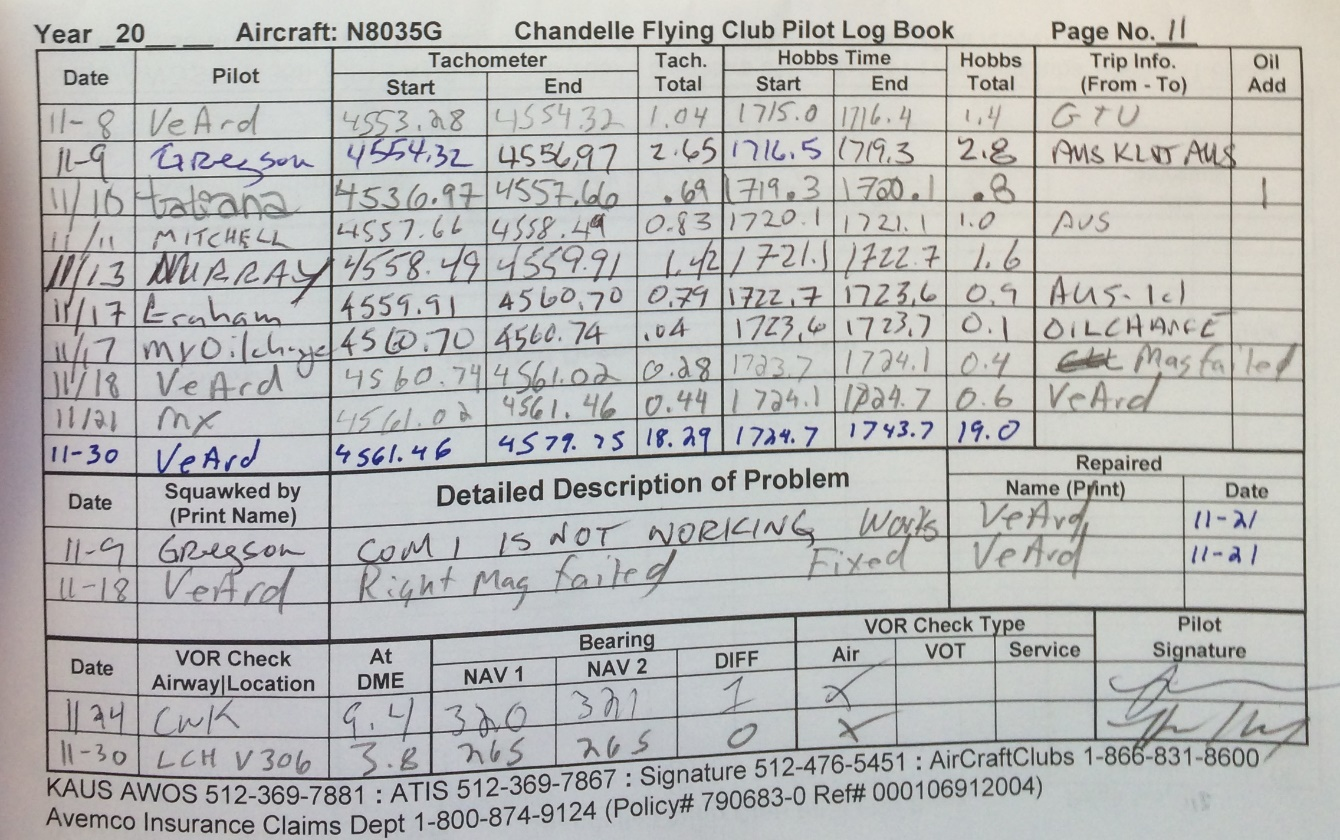 Year 20__ __ Aircraft: N8035G Chandelle Flying Club Pilot Log Book Page No. 11
Date Pilot Tachometer Start End Tach. Total Hobbs Time Start End Hobbs Total Trip Info. (From - To) Oil Add
11-8 VeArd 4553.28 4554.32 1.04 1715.0 1716.4 1.4 GTU
11-9 Gregson 4554.32 4556.97 2.65 1716.5 1719.3 2.8 AUS KLVT AUS
11/10 tatiana 4536.97 4557.66 .69 1719.3 1720.1 .8 1
11/11 MITCHELL 4557.66 4558.49 0.83 1720.1 1721.1 1.0 AUS
11/13 MURRAY 4558.49 4559.91 1.42 1721.1 1722.7 1.6
11/17 Graham 4559.91 4560.70 0.79 1722.7 1723.6 0.9 AUS-lcl
11/17 mx Oilchange 4560.70 4560.74 .04 1723.6 1723.7 0.1 OILCHANGE
11/18 VeArd 4560.74 4561.02 0.28 1723.7 1724.1 0.4 Mag failed
11/21 mx 4561.02 4561.46 0.44 1724.1 1824.7 0.6 VeArd
11-30 VeArd 4561.46 4579.75 18.29 1724.7 1743.7 19.0
Date Squawked by (Print Name) Detailed Description of Problem Repaired Name (Print) Date
11-9 Gregson COM 1 IS NOT WORKING Works VeArd 11-21
11-18 VeArd Right Mag failed Fixed VeArd 11-21
Date VOR Check Airway|Location At DME Bearing NAV 1 NAV 2 DIFF VOR Check Type Air VOT Service Pilot Signature
11 24 CWK 9.4 320 321 1 X
11-30 LCH V306 3.8 265 265 0 X
KAUS AWOS 512-369-7881 : ATIS 512-369-7867 : Signature 512-476-5451 : AirCraftClubs 1-866-831-8600
Avemco Insurance Claims Dept 1-800-874-9124 (Policy# 790683-0 Ref# 000106912004)